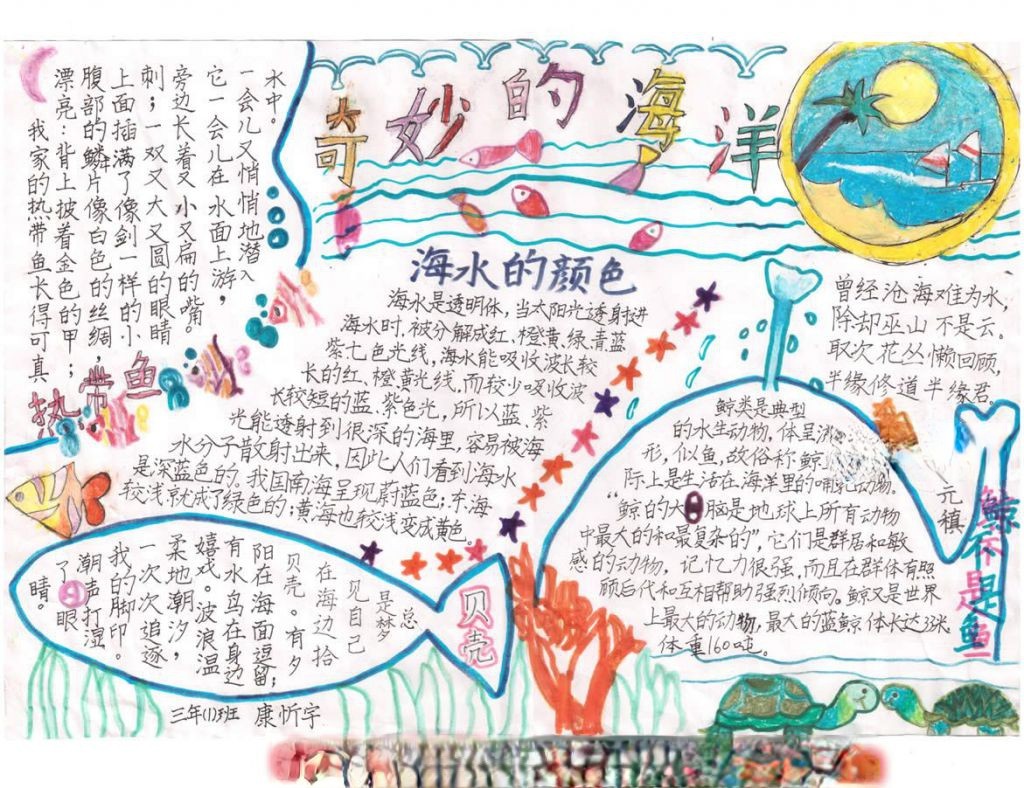 奇妙的海洋
我家的热带鱼长得可真
漂亮：背上披着金色的甲；
腹部的鳞片像白色的丝绸；
上面插满了像剑一样的小
刺；一双又大又圆的眼睛
旁边长着又小又扁的嘴。
它一会儿在水面上游，
一会儿又悄悄地潜入
水中。
热带鱼
海水的颜色
海水是透明体，当太阳光透射进
海水时，被分解成红、橙、黄、绿、青、蓝
紫七色光线，海水能吸收波长较
长的红、橙、黄光线，而较少吸收波
长较短的蓝、紫色光，所以蓝、紫
光能透射到很深的海里，容易被海
水分子散射出来，因此人们看到海水
是深蓝色的。我国南海呈现蔚蓝色；东海
较浅就成了绿色的；黄海也较浅变成黄色。
曾经沧海难为水，
除却巫山不是云。
取次花丛懒回顾，
半缘修道半缘君。
元稹
鲸不是鱼
鲸类是典型
的水生动物，体呈
形，似鱼，故俗称鲸
际上是生活在海洋里的哺乳动物。
“鲸的大脑是地球上所有动物
中最大的和最复杂的”，它们是群居和敏
感的动物，记忆力很强，而且在群体有照
顾后代和互相帮助强烈倾向。鲸又是世界
上最大的动物，最大的蓝鲸体长达33米
体重160吨。
贝壳
总
是梦
见自己
在海边拾
贝壳。有夕
阳在海面逗留；
有水鸟在身边
嬉戏。波浪温
柔地潮汐，
一次次追逐
我的脚印。
潮声打湿
了眼
睛。
三年(1)班 康忻宇